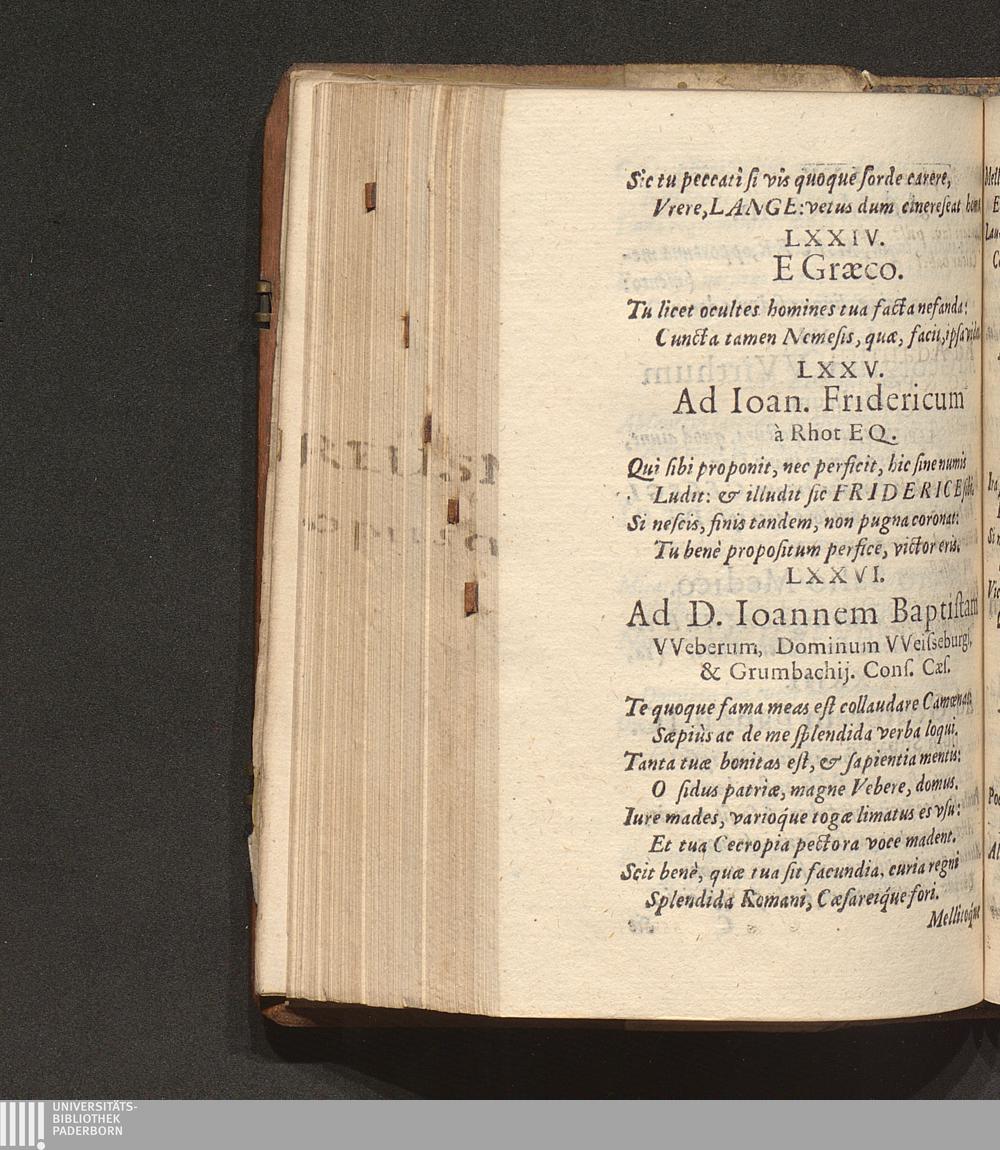 Sic tu peccati si vis quoque sorde carere,
Vrere, LANGE: vetus dum cinerescat homo
LXXIV.
E Græco.
Tu licet ocultes homines tua facta nefanda:
Cuncta tamen Nemesis, quæ, facis, ipsa videt
LXXV.
Ad Ioan. Fridericum
à Rhot EQ.
Qui sibi proponit, nec perficit, hic sine numis
Ludit: & illudit sic FRIDERICE sibi.
Si nescis, finis tandem, non pugna coronat:
Tu benè propositum perfice, victor eris.
LXXVI.
Ad D. Ioannem Baptistam
VVeberum, Dominum VVeisseburgi,
& Grumbachij. Cons. Cæs.
Te quoque fama meas est collaudare Camœnas,
Sæpiùs ac de me splendida verba loqui.
Tanta tuæ bonitas est, & sapientia mentis:
O sidus patriæ, magne Vebere, domus.
Iure mades, varioq́ue togæ limatus es vsu:
Et tua Cecropia pectora voce madent.
Scit benè, quæ tua sit facundia, curia regni
Splendida Romani, Cæsareiq́ue fori.
Mellitoq́ue
UNIVERSITÄTS-
BIBLIOTHEK
PADERBORN